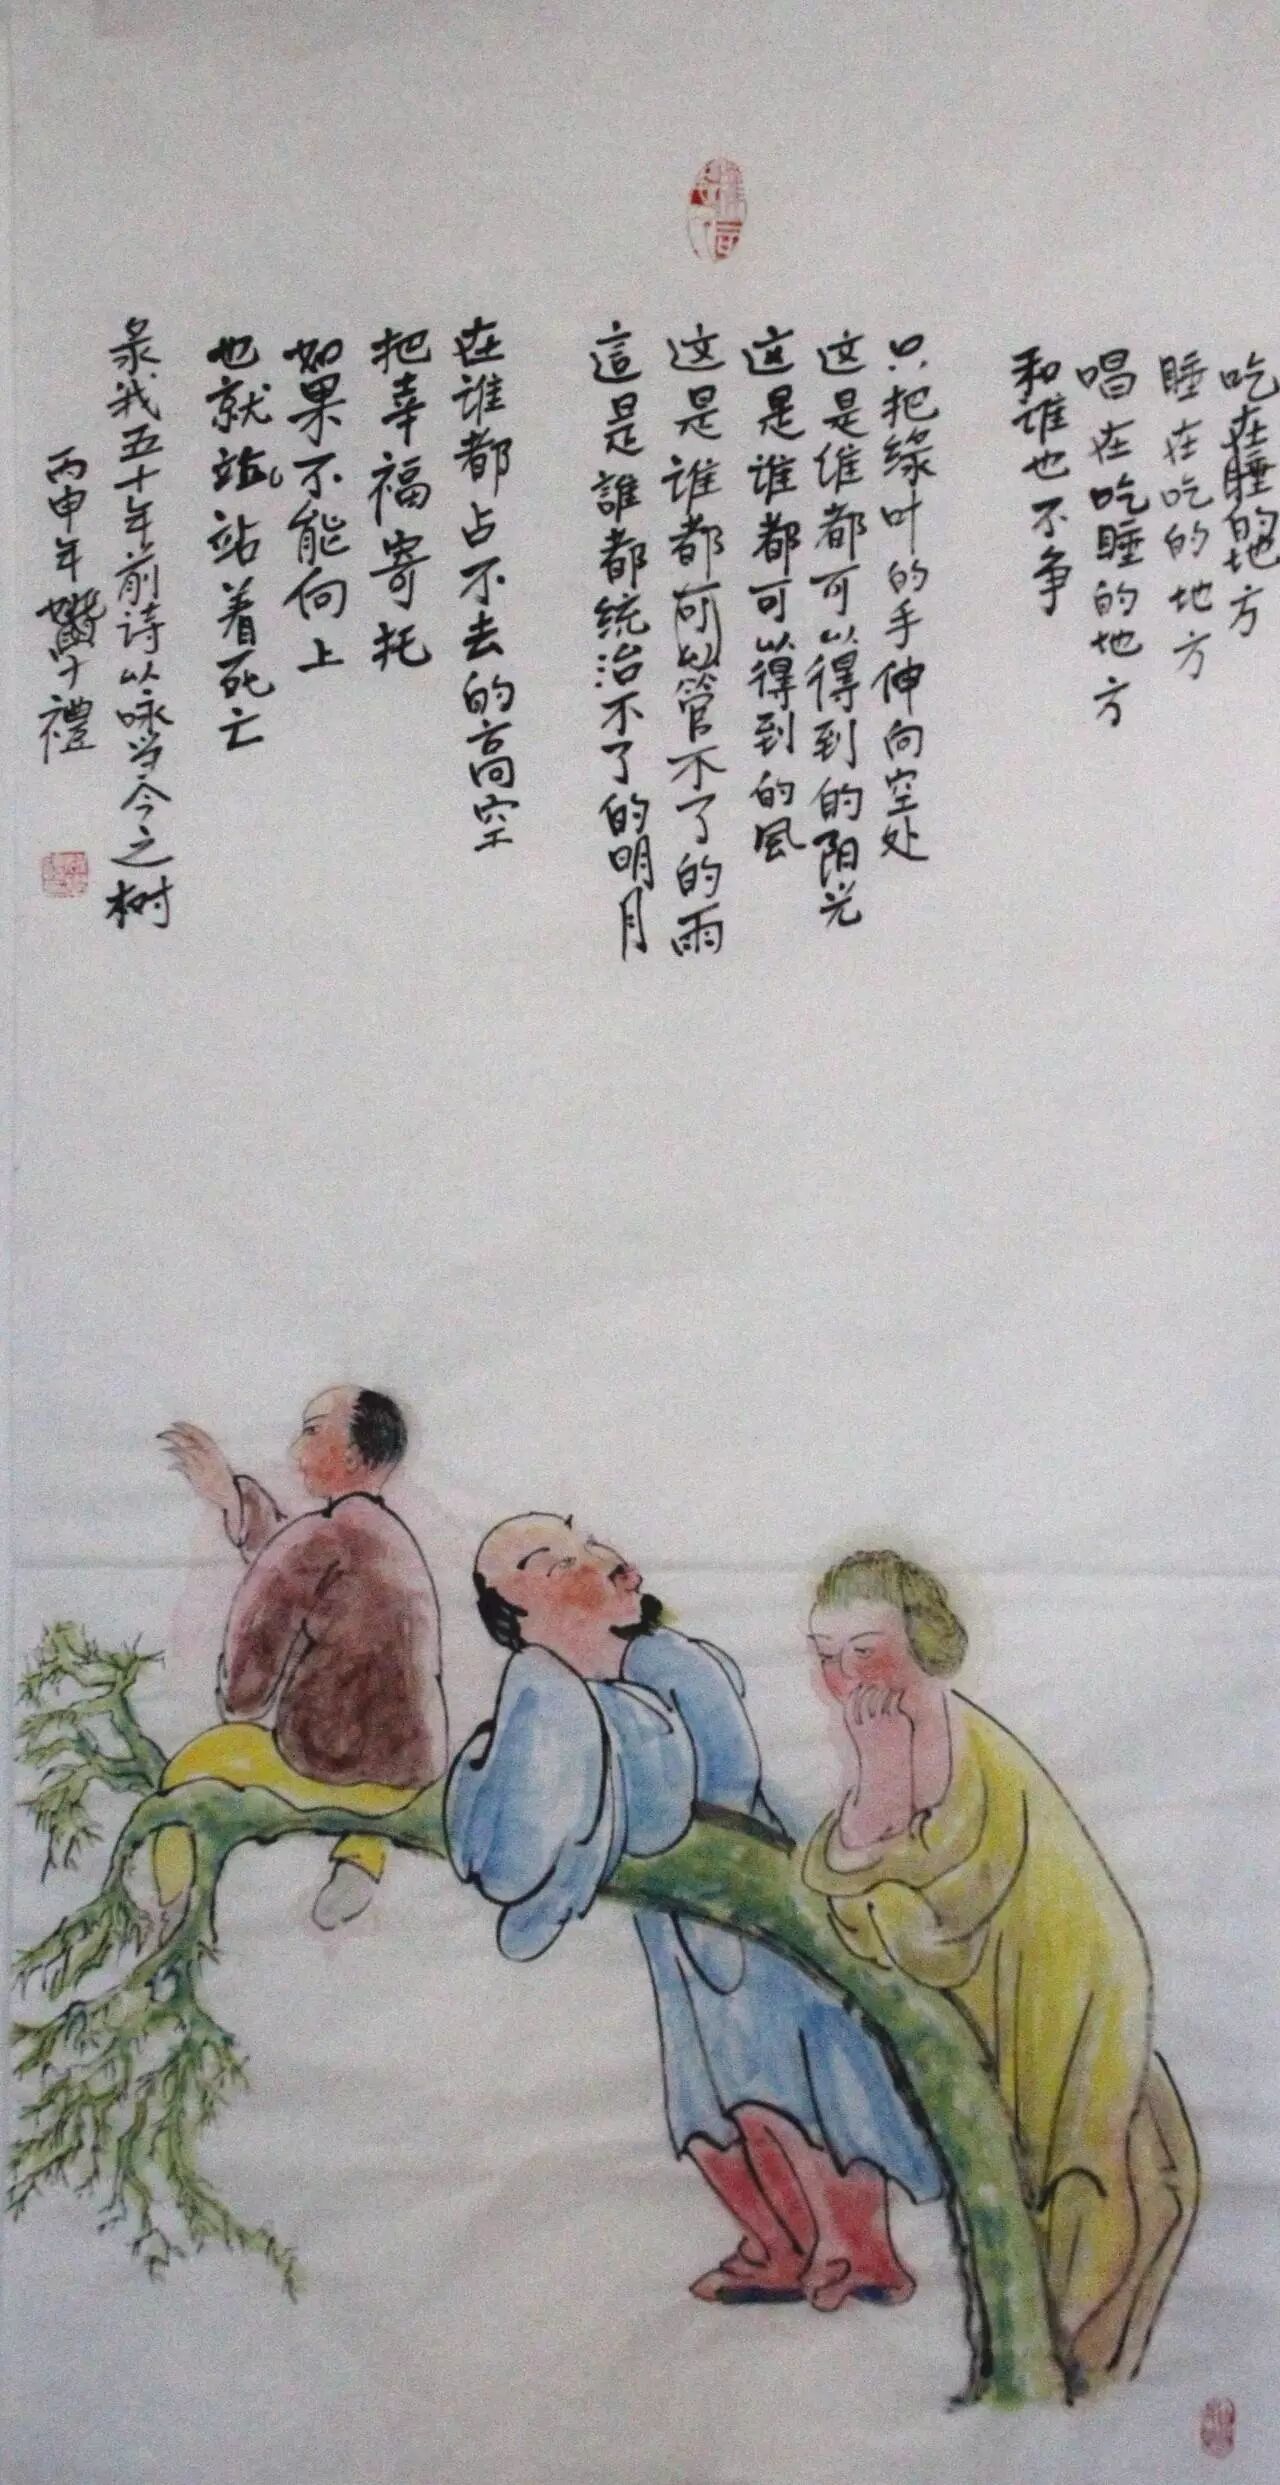 吃在睡的地方
睡在吃的地方
唱在吃睡的地方
和谁也不争
只把绿叶的手伸向空处
这是谁都可以得到的阳光
这是谁都可以得到的风
这是谁都可以管不了的雨
這是誰都统治不了的明月
在谁都占不去的高空
把幸福寄托
如果不能向上
也就站站着死亡
录我五十年前诗以咏当今之树
丙申年 禮